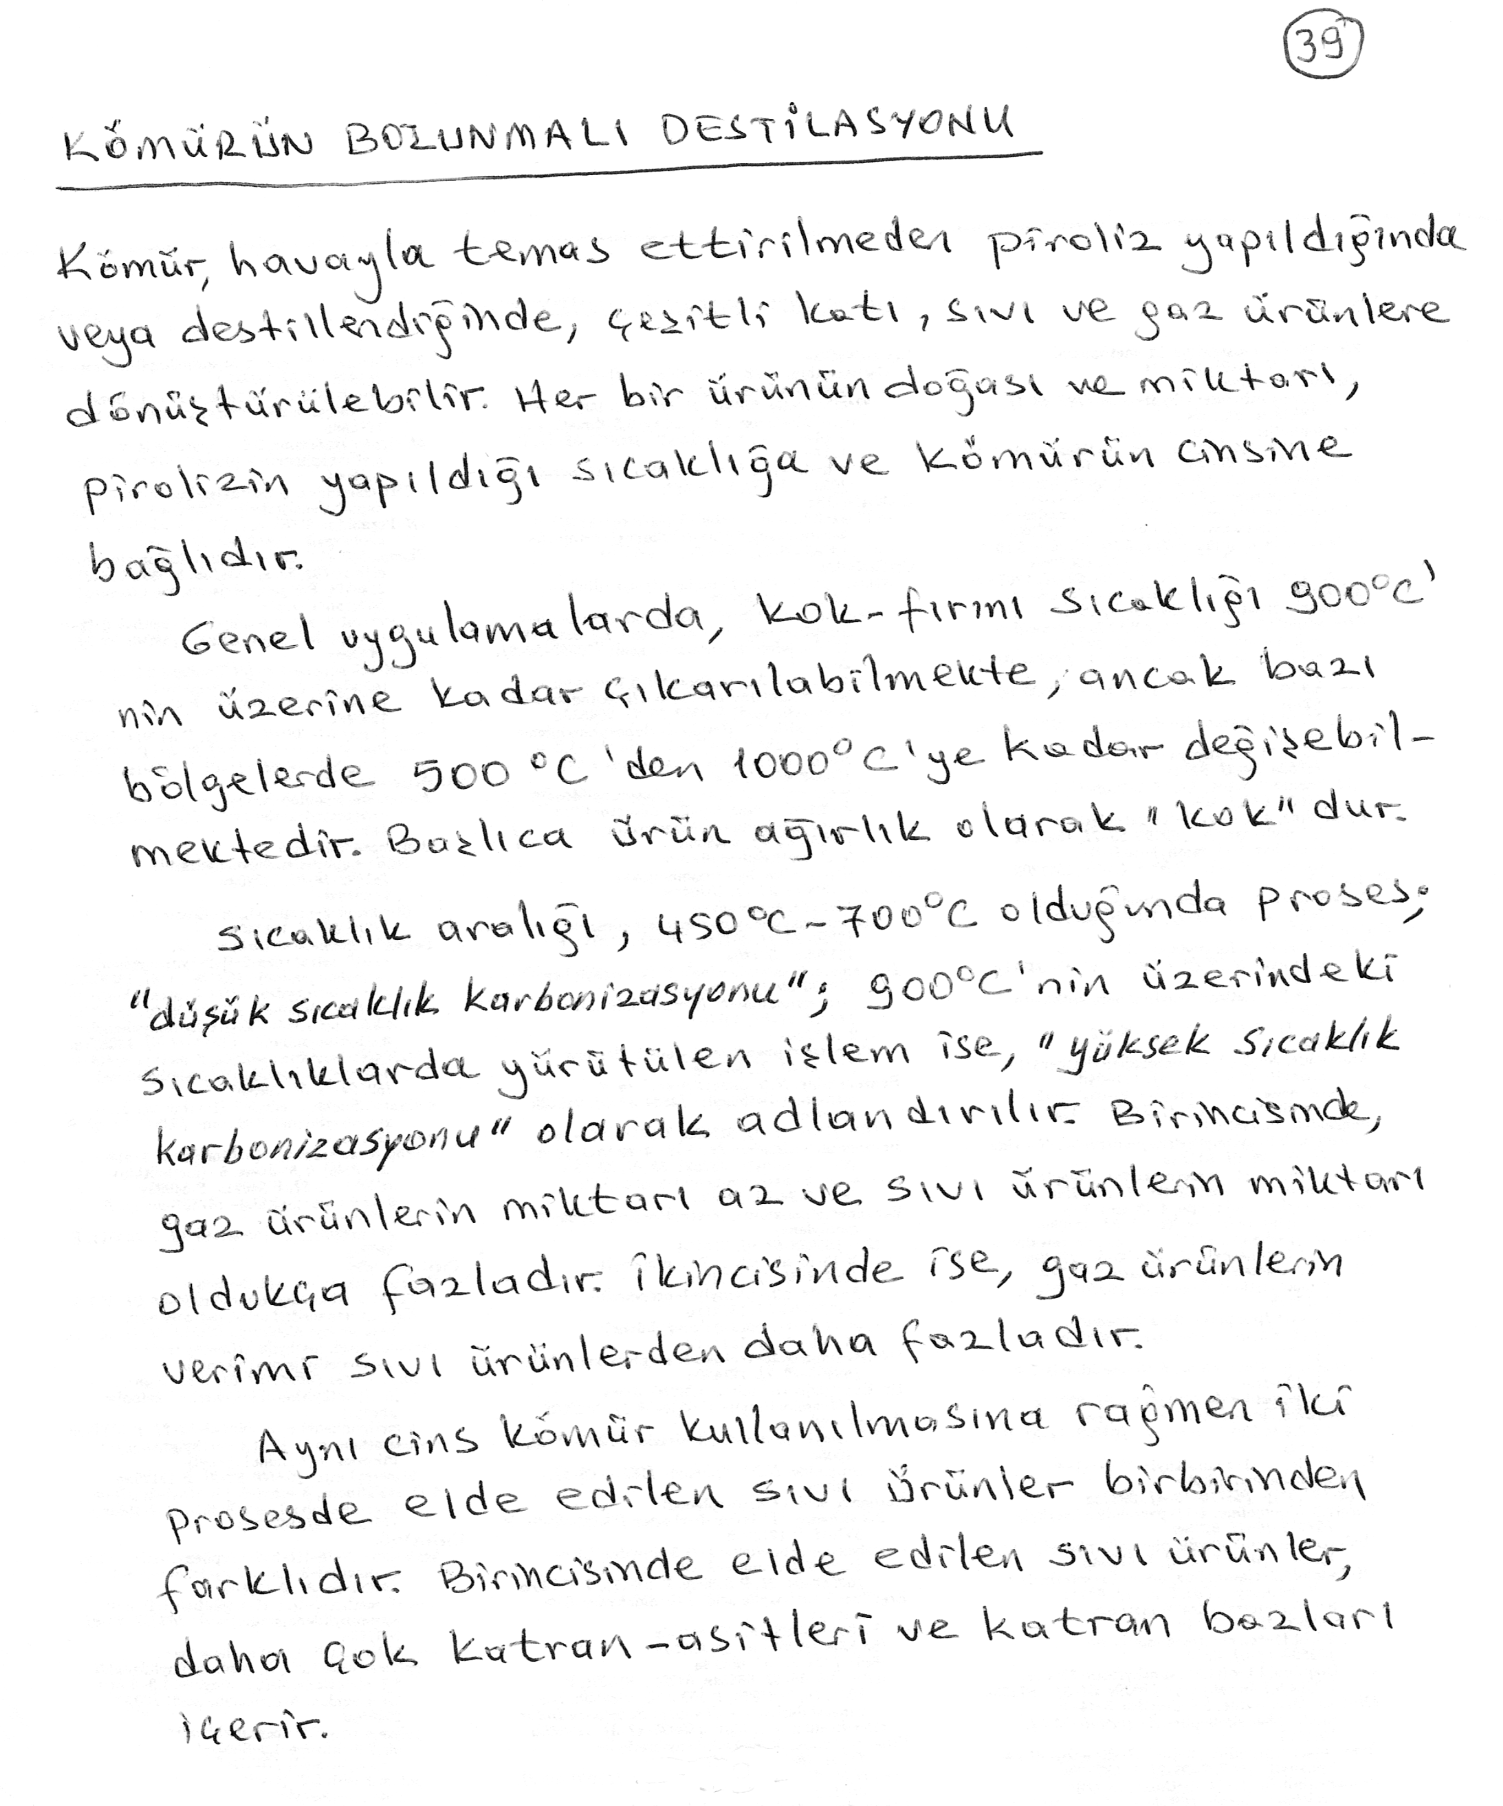 39
KÖMÜRÜN BOZUNMALI DESTİLASYONU
Kömür, havayla temas ettirilmeden piroliz yapıldığında
veya destillendiğinde, çeşitli katı, sıvı ve gaz ürünlere
dönüştürülebilir. Her bir ürünün doğası ve miktarı,
pirolizin yapıldığı sıcaklığa ve kömürün cinsine
bağlıdır.
Genel uygulamalarda, kok-fırını sıcaklığı 900°C'
nin üzerine kadar çıkarılabilmekte, ancak bazı
bölgelerde 500 °C'den 1000°C'ye kadar değişebil-
mektedir. Başlıca ürün ağırlık olarak "kok" dur.
Sıcaklık aralığı, 450°C-700°C olduğunda proses;
"düşük sıcaklık karbonizasyonu"; 900°C'nin üzerindeki
sıcaklıklarda yürütülen işlem ise, "yüksek sıcaklık
karbonizasyonu" olarak adlandırılır. Birincisinde,
gaz ürünlerin miktarı az ve sıvı ürünlerin miktarı
oldukça fazladır. İkincisinde ise, gaz ürünlerin
verimi sıvı ürünlerden daha fazladır.
Aynı cins kömür kullanılmasına rağmen iki
prosesde elde edilen sıvı ürünler birbirinden
farklıdır. Birincisinde elde edilen sıvı ürünler,
daha çok katran-asitleri ve katran bazları
içerir.